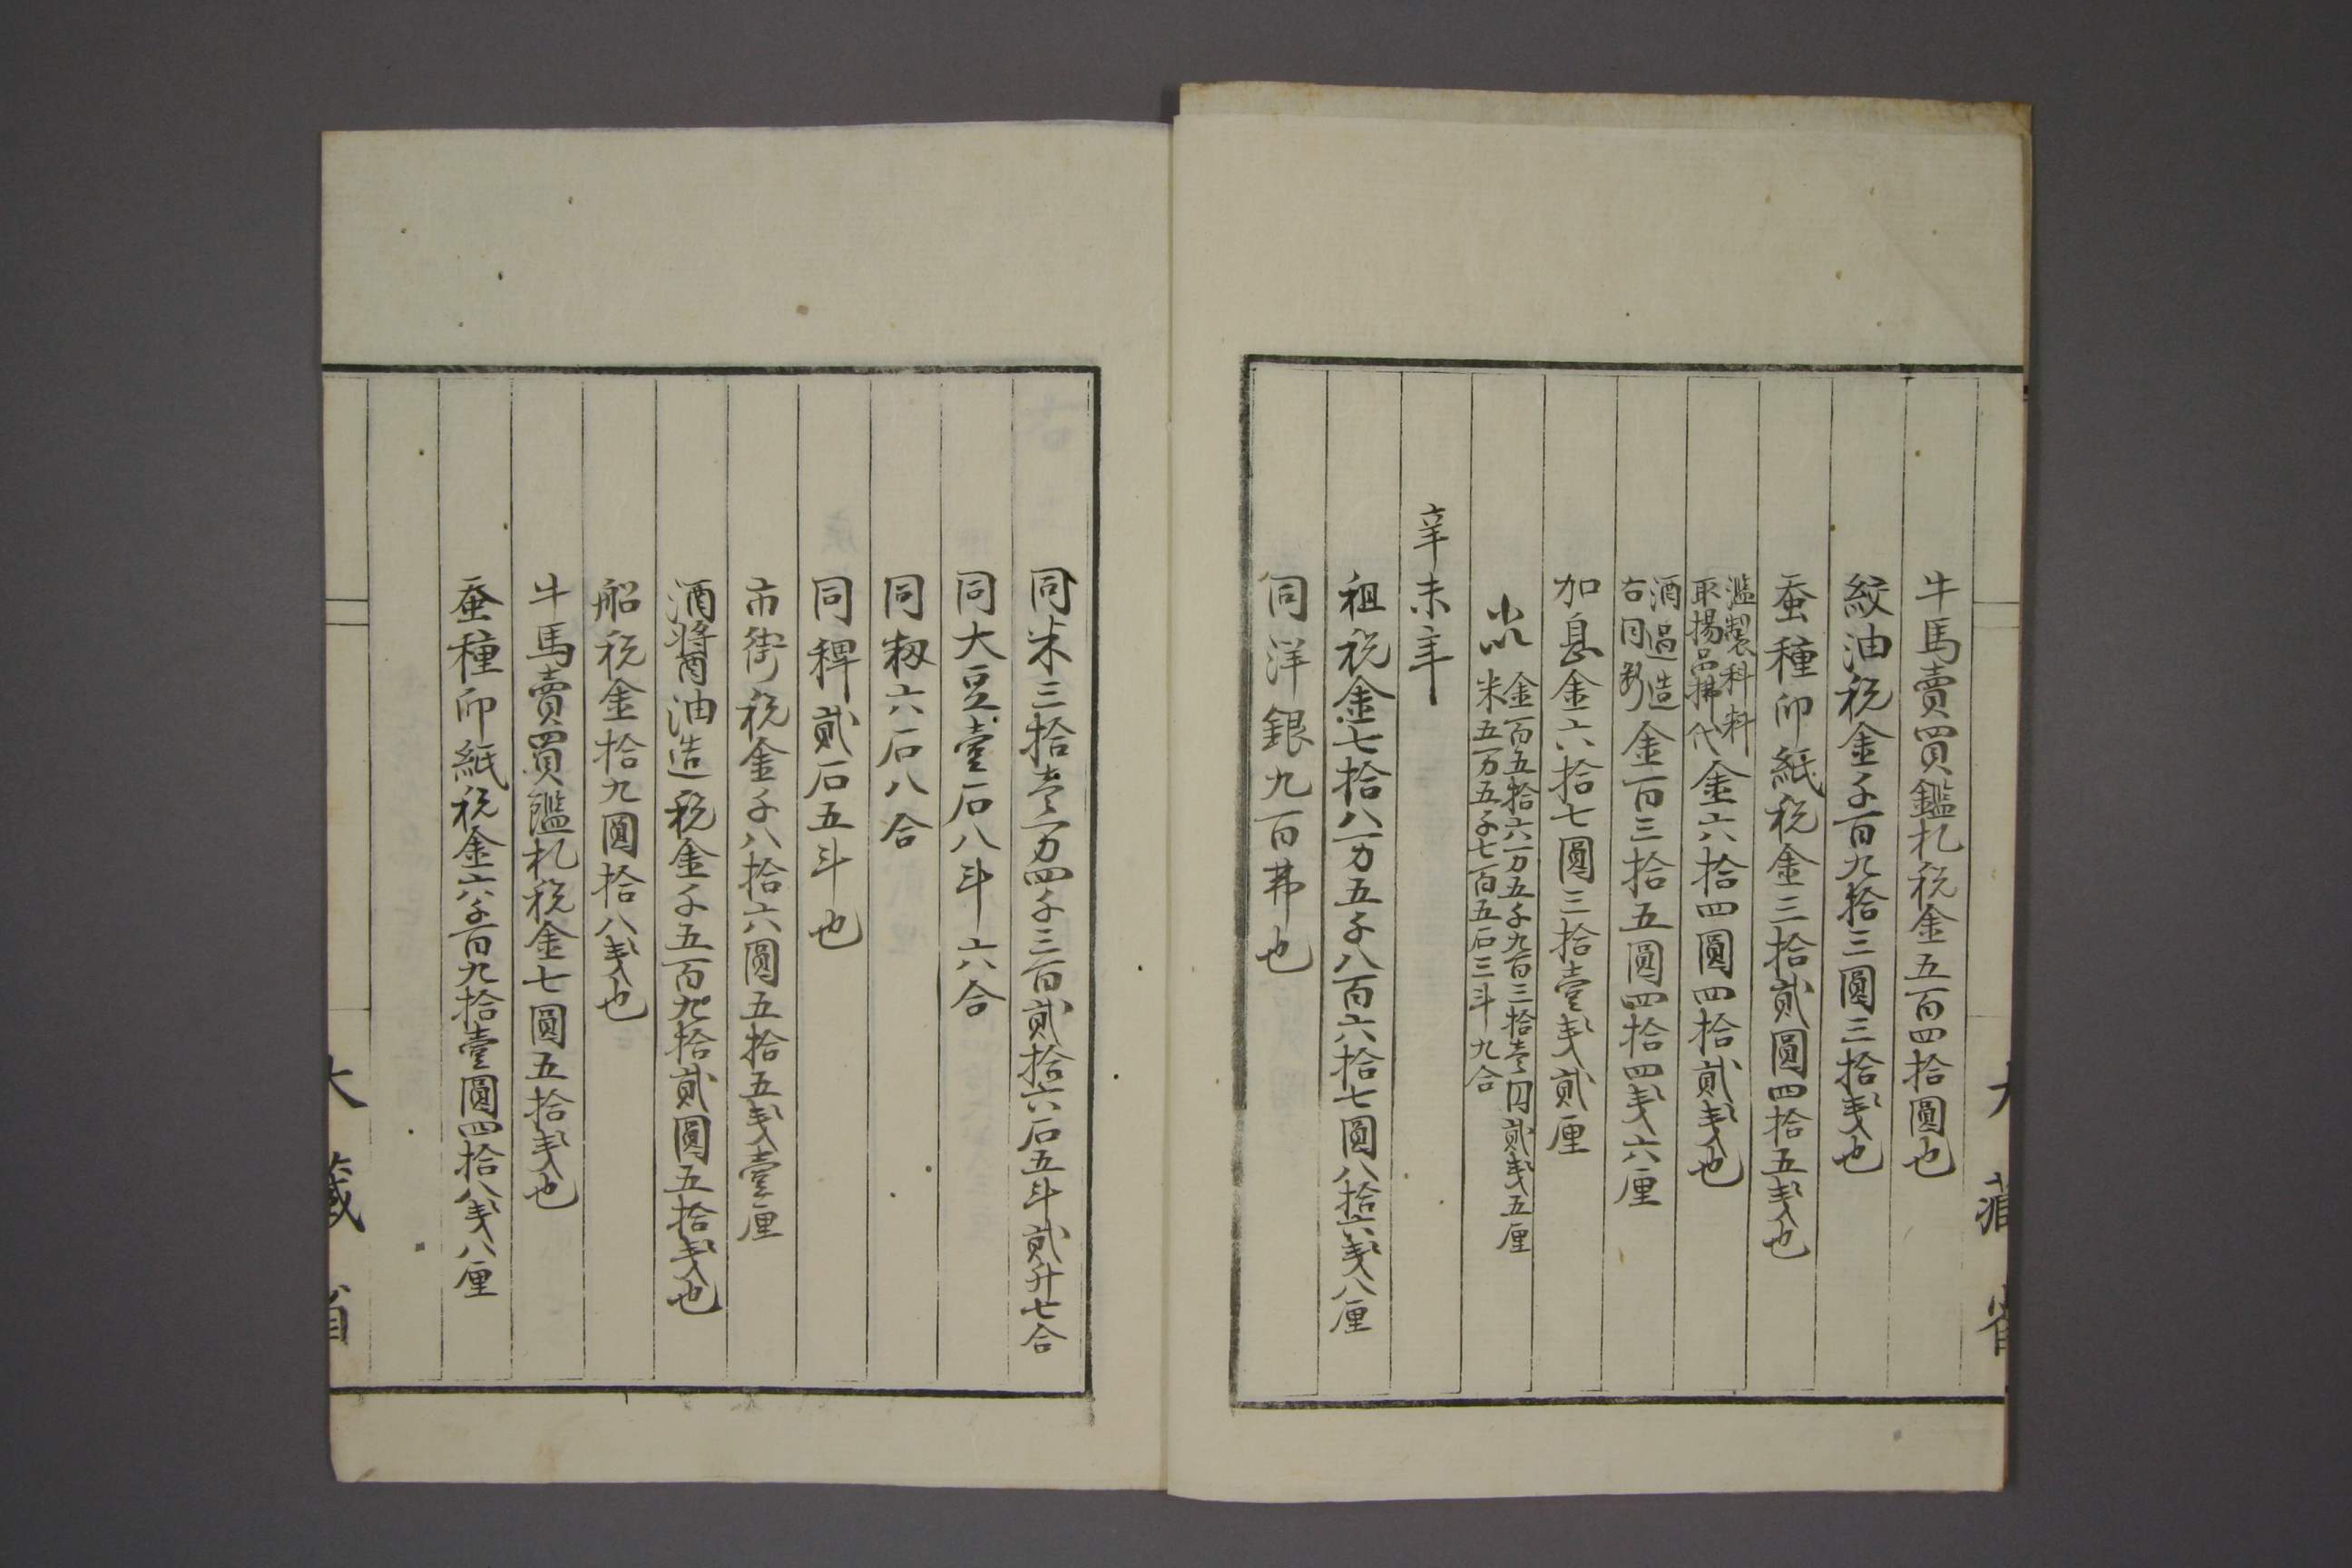 牛馬賣買鑑札税金五百四拾圓也
絞油税金千百九拾三圓三拾銭也
蚕種印紙税金三拾貳圓四拾五銭也
濫製科料
取揚品拂代金六拾四圓四拾貳銭也
酒過造
右同断金百三拾五圓四拾四銭六厘
加息金六拾七圓三拾壹銭貳厘
小以
金百五拾六万五千九百三拾壱円貳銭五厘
米五万五千七百五石三斗九合
辛未年
租税金七拾八万五千八百六拾七圓八拾六銭八厘
同洋銀九百弗也
大藏省
同米三拾壱万四千三百貳拾六石五斗貳升七合
同大豆壹石八斗六合
同籾六石八合
同稗貳石五斗也
市街税金千八拾六圓五拾五銭壹厘
酒醤油造税金千五百九拾貳圓五拾銭也
船税金拾九圓拾八銭也
牛馬賣買鑑札税金七圓五拾銭也
蚕種印紙税金六千百九拾壹圓四拾八銭八厘
大藏省